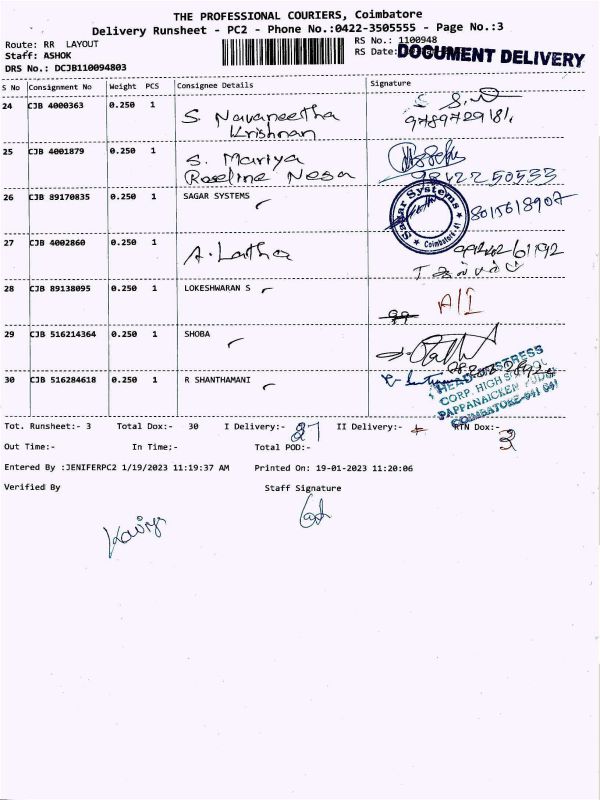 THE PROFESSIONAL COURIERS, Coimbatore
Delivery Runsheet - PC2 - Phone No.:0422-3505555 - Page No.:3
Route: RR LAYOUT
RS No.: 1100948
Staff: ASHOK
RS Date:
DOCUMENT DELIVERY
DRS No.: DCJB110094803
S No Consignment No Weight PCS Consignee Details Signature
24 CJB 4000363 0.250 1 S. Navaneetha Krishnan
9789729181,
25 CJB 4001879 0.250 1 S. Mariya Roseline Nesa
9842250533
26 CJB 89170835 0.250 1 SAGAR SYSTEMS
Sagar Systems
Coimbatore-41
8015618907
27 CJB 4002860 0.250 1 A. Latha
28 CJB 89138095 0.250 1 LOKESHWARAN S
A/I
29 CJB 516214364 0.250 1 SHOBA
30 CJB 516284618 0.250 1 R SHANTHAMANI
HEADMISTRESS
CORP. HIGH SCHOOL
PAPPANAICKEN PUDUR
COIMBATORE-641 041
Tot. Runsheet:- 3 Total Dox:- 30 I Delivery:- 27 II Delivery:- RTN Dox:- 3
Out Time:- In Time:- Total POD:-
Entered By :JENIFERPC2 1/19/2023 11:19:37 AM Printed On: 19-01-2023 11:20:06
Verified By Staff Signature
Kaviya